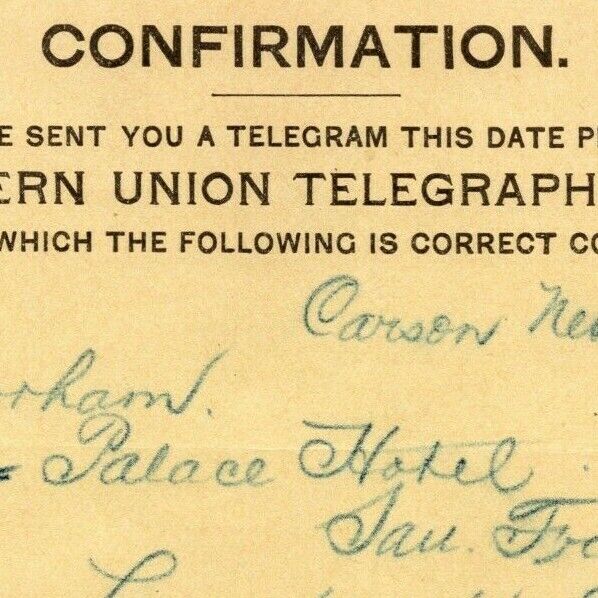 CONFIRMATION.
E SENT YOU A TELEGRAM THIS DATE P
ERN UNION TELEGRAPH
WHICH THE FOLLOWING IS CORRECT CO
Carson Nev
orham.
Palace Hotel
San. Fr